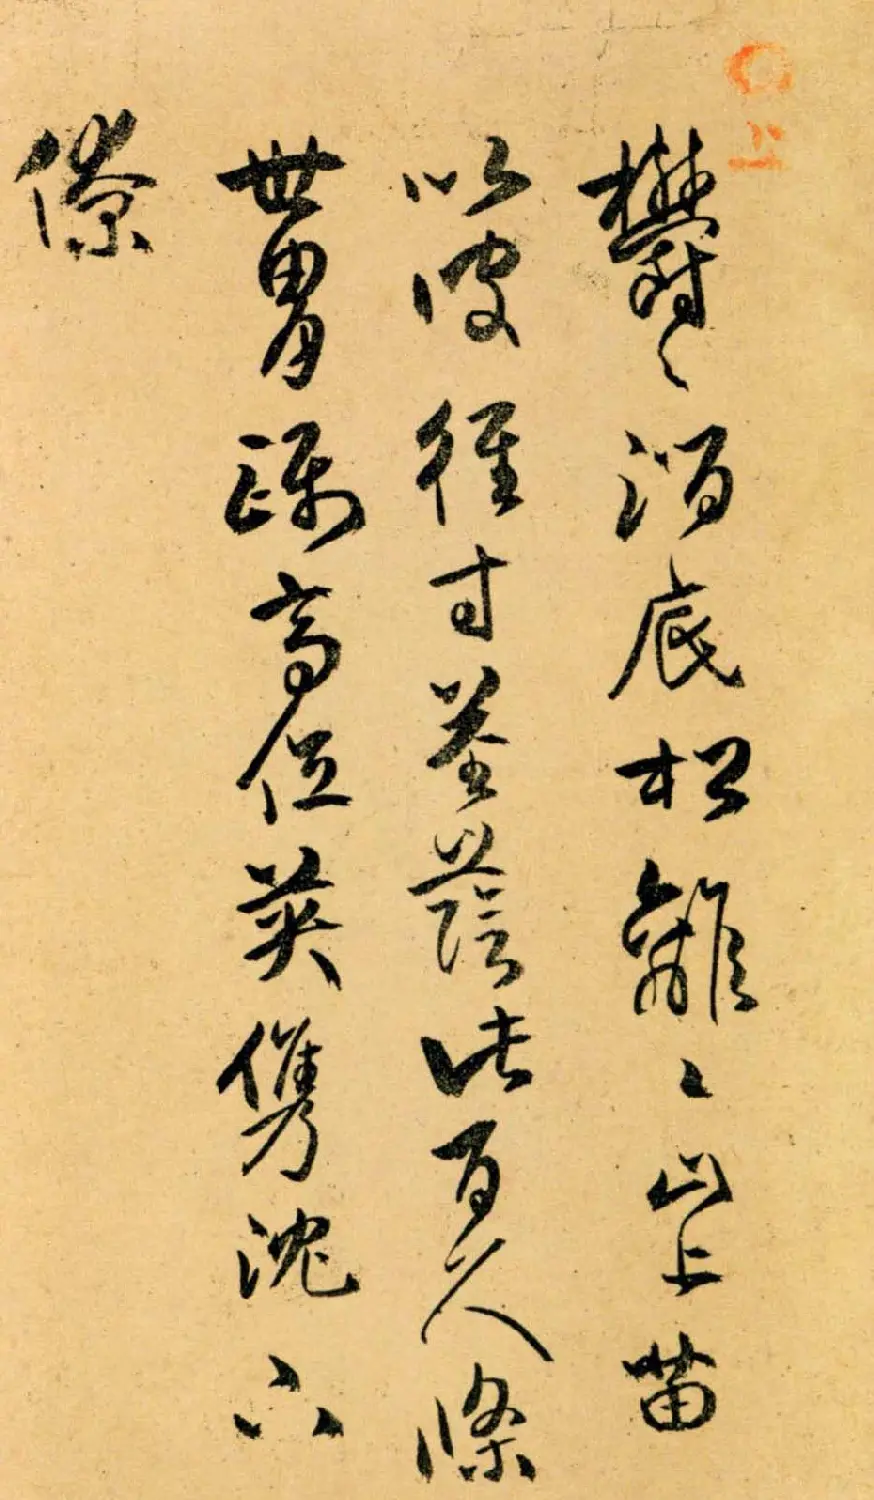 鬱〻澗底松離〻山上苗
以彼徑寸莖蔭此百尺條
世胄躡高位英儁沈下
僚